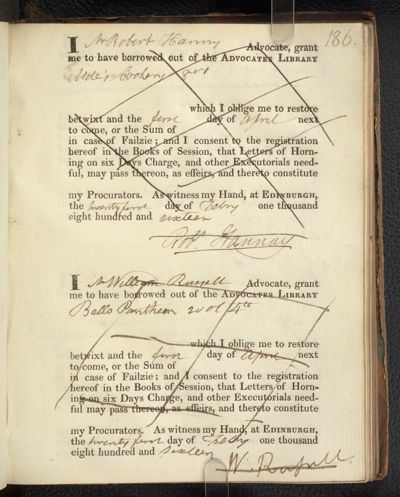 186.
I Mr Robert Hannay Advocate, grant
me to have borrowed out of the ADVOCATES LIBRARY
Cookery 8vo
which I oblige me to restore
betwixt and the first day of April next
to come, or the Sum of
in case of Failzie; and I consent to the registration
hereof in the Books of Session, that Letters of Horn-
ing on six Days Charge, and other Executorials need-
ful, may pass thereon, as effeirs, and thereto constitute
my Procurators. As witness my Hand, at EDINBURGH,
the twenty first day of Feby one thousand
eight hundred and sixteen
Robt. Hannay
I Mr William Russell Advocate, grant
me to have borrowed out of the ADVOCATES LIBRARY
Bells Pantheon 2 vol 4to
which I oblige me to restore
betwixt and the first day of April next
to come, or the Sum of
in case of Failzie; and I consent to the registration
hereof in the Books of Session, that Letters of Horn-
ing on six Days Charge, and other Executorials need-
ful may pass thereon, as effeirs, and thereto constitute
my Procurators. As witness my Hand, at EDINBURGH,
the twenty first day of Feby one thousand
eight hundred and sixteen
W. Russell